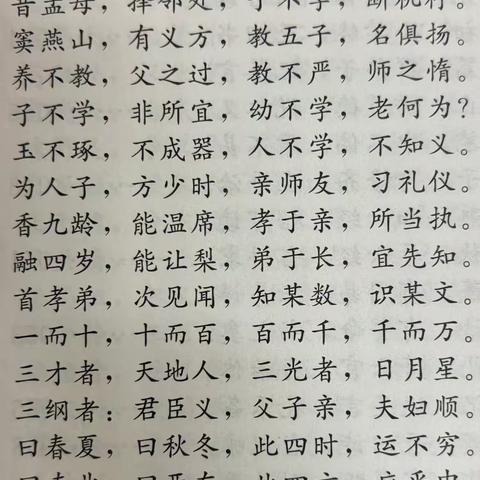 昔孟母，择邻处，子不学，断机杼。
窦燕山，有义方，教五子，名俱扬。
养不教，父之过，教不严，师之惰。
子不学，非所宜，幼不学，老何为？
玉不琢，不成器，人不学，不知义。
为人子，方少时，亲师友，习礼仪。
香九龄，能温席，孝于亲，所当执。
融四岁，能让梨，弟于长，宜先知。
首孝弟，次见闻，知某数，识某文。
一而十，十而百，百而千，千而万。
三才者，天地人，三光者，日月星。
三纲者：君臣义，父子亲，夫妇顺。
曰春夏，曰秋冬，此四时，运不穷。